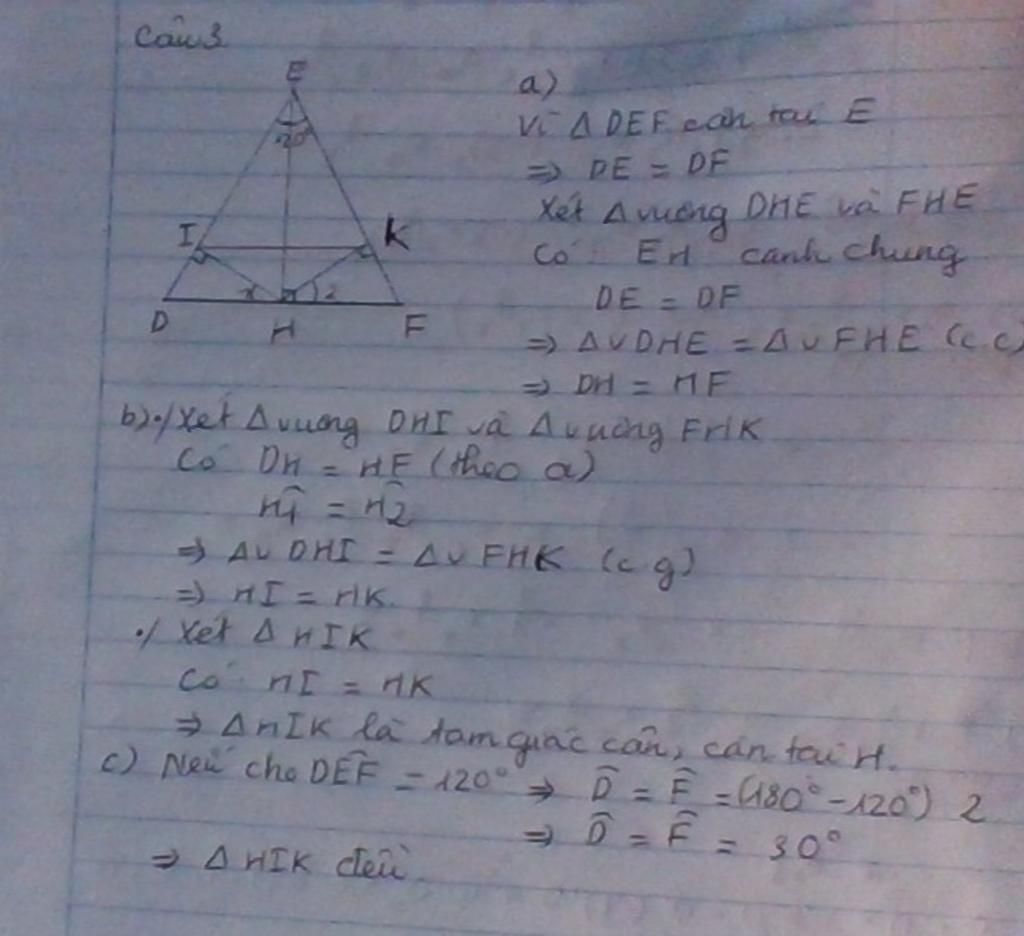 Câu 3
E
120°
I
K
D
H
F
2
a)
Vì Δ DEF cân tại E
⇒ DE = DF
Xét Δ vuông DHE và FHE
Có EH cạnh chung
DE = DF
⇒ Δv DHE = Δv FHE (c c)
⇒ DH = HF
b) ./ Xét Δ vuông DHI và Δ vuông FHK
Có DH = HF (theo a)
Ĥ1 = Ĥ2
⇒ Δv DHI = Δv FHK (c g)
⇒ HI = HK.
./ Xét Δ HIK
Có HI = HK
⇒ Δ HIK là tam giác cân, cân tại H.
c) Nếu cho DÊF = 120° ⇒ D̂ = F̂ = (180° - 120°) 2
⇒ D̂ = F̂ = 30°
⇒ Δ HIK đều.